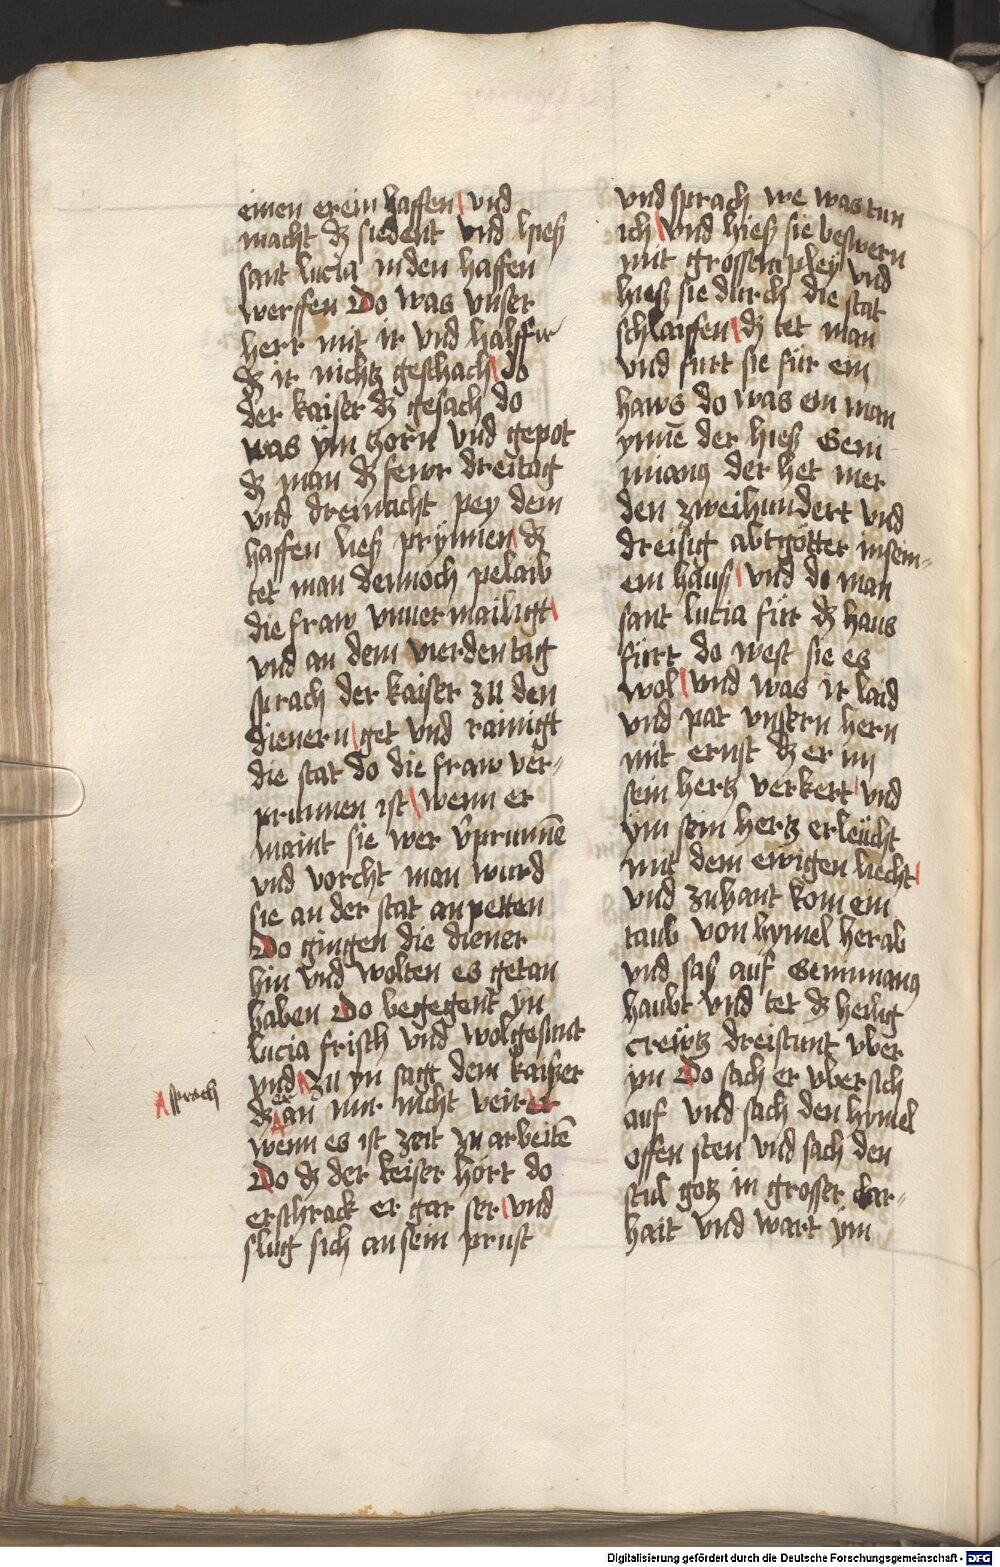 einen erein haffen / vnd
macht dz siedent vnd hieß
sant lucia in den haffen
werffen Do was vnser
herr mit ir vnd halff ir
dz ir nichtz geschach / do
der kaiser dz gesach do
was ym zorn vnd gepot
dz man dz fewr dreitag
vnd dreinacht pey dem
haffen ließ prynnen / dz
tet man dennoch pelaib
die fraw vnuermailigt /
vnd an dem vierden tag
sprach der kaiser zu den
dienern / get vnd rainigt
die stat do die fraw ver-
prunnen ist / wenn er
maint sie wer v̾prunnē
vnd vorcht man wurd
sie an der stat an petten
Do gingen die diener
hin vnd wolten es getan
haben Do begegent yn
lucia frisch vnd wolgesunt
vnd / zu yn sagt dem kaiser
sprach
dz er an mir nicht veirer
wenn es ist zeit zu arbeitē
Do dz der keiser hort do
erschrack er gar ser / vnd
slug sich an sein prust
vnd sprach we was tun
ich / vnd hieß sie beswern
mit grossem pley vnd
hieß sie durch die stat
schlaiffen / dz tet man
vnd furt sie für ein
haws do was ein man
ynnē der hieß Gemi
nianꝯ der het mer
den zweihundert vnd
dreisig abtgötter in sein-
em hauß / vnd do man
sant lucia für dz haus
fürt do west sie es
wol / vnd was ir laid
vnd pat vnsern hern
mit ernst dz er im
sein hertz verkert / vnd
ym sein hertz erleücht
mit dem ewigen liecht /
vnd zuhant kom ein
taub von hymel herab
vnd saß auf Geminianꝯ
haubt vnd tet dz heilig
crewtz dreistunt vber
yn Do sach er vbersich
auf vnd sach den hymel
offen sten vnd sach den
stul gotz in grosser clar-
hait vnd wart ym
Digitalisierung gefördert durch die Deutsche Forschungsgemeinschaft - DFG